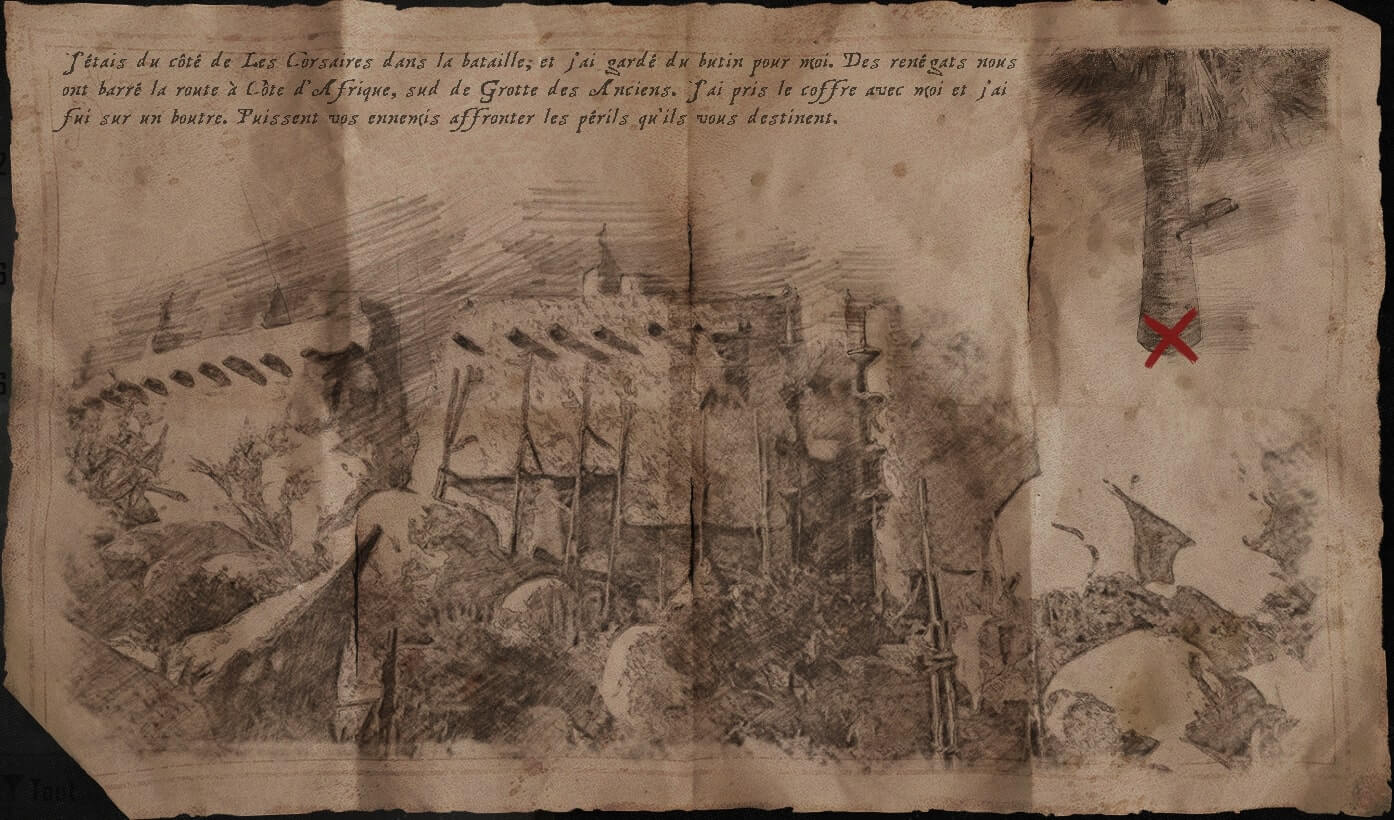 J'étais du côté de Les Corsaires dans la bataille; et j'ai gardé du butin pour moi. Des renégats nous
ont barré la route à Côte d'Afrique, sud de Grotte des Anciens. J'ai pris le coffre avec moi et j'ai
fui sur un boutre. Puissent vos ennemis affronter les périls qu'ils vous destinent.
Tout